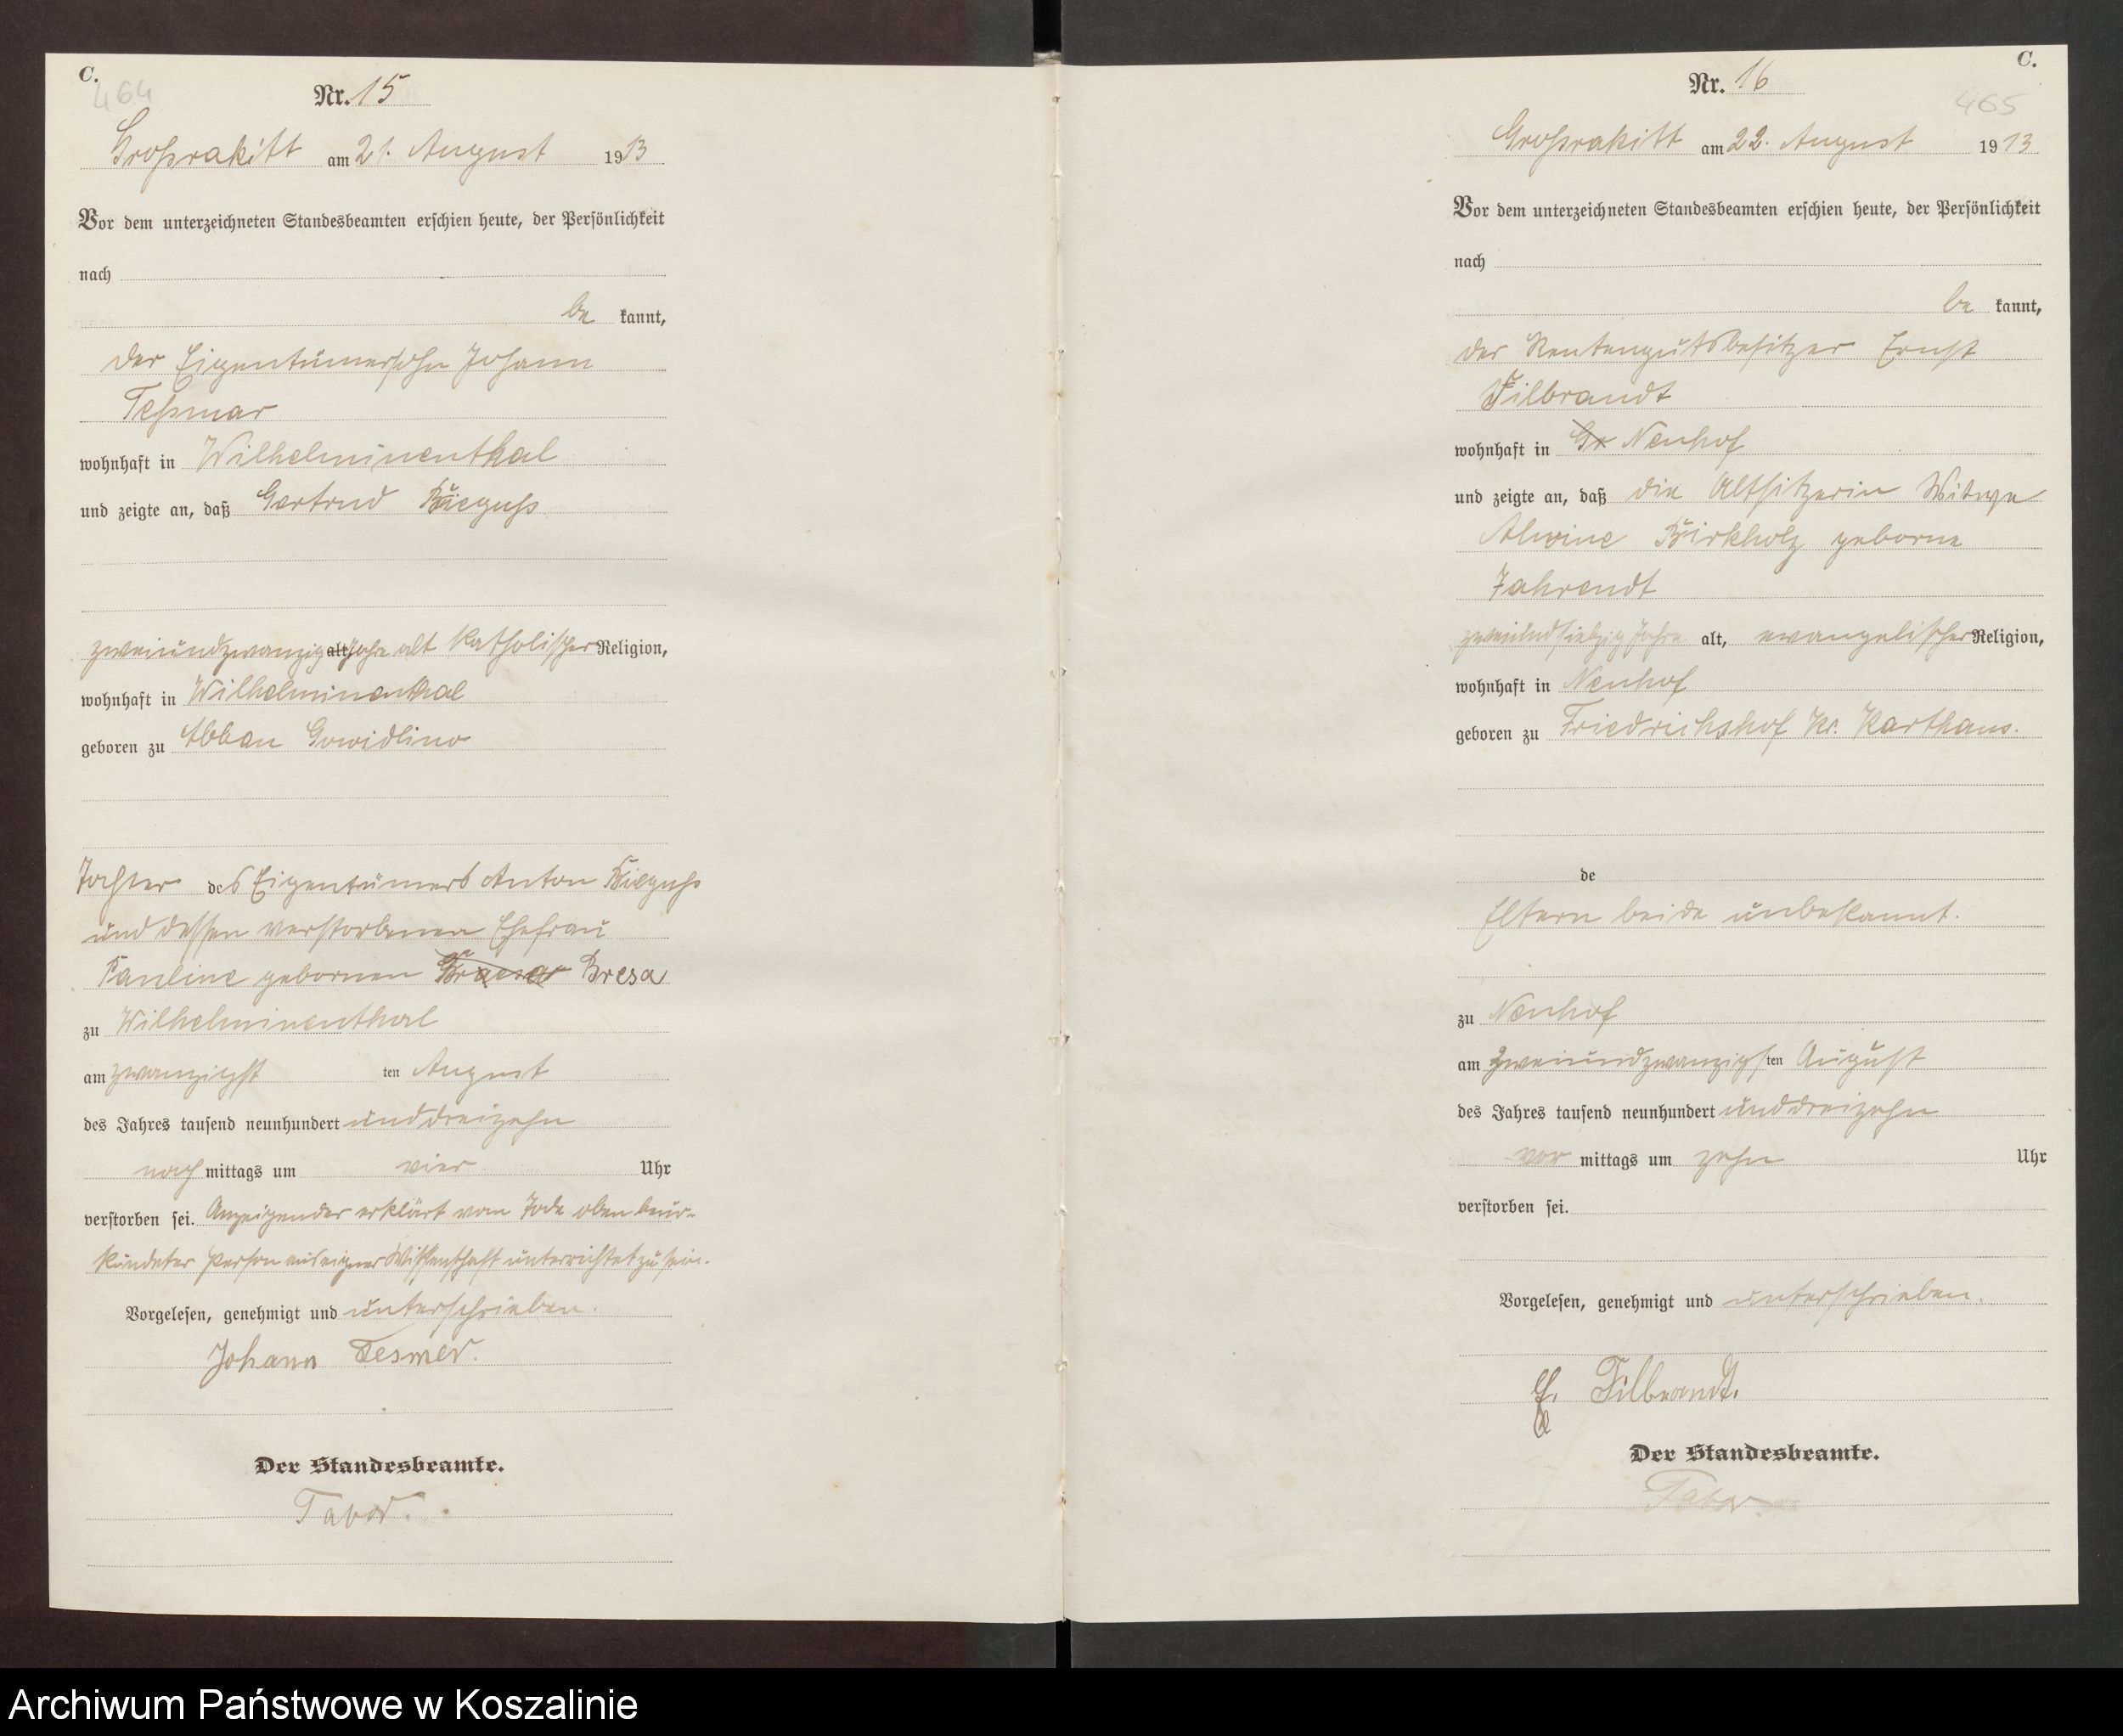 C.
464
Nr. 15
Großrakitt am 21. August 1913
Vor dem unterzeichneten Standesbeamten erschien heute, der Persönlichkeit
nach
be kannt,
der Eigentümersohn Johann
Teßmar
wohnhaft in Wilhelminenthal
und zeigte an, daß Gertrud
zweiundzwanzig alt Jahre alt katholischer Religion,
wohnhaft in Wilhelminenthal
geboren zu Abbau Gowidlino
Tochter des Eigentümers Anton
und dessen verstorbenen Ehefrau
Pauline gebornen Bresa
zu Wilhelminenthal
am zwanzigst ten August
des Jahres tausend neunhundert unddreizehn
nach mittags um vier Uhr
verstorben sei. Anzeigender erklärt vom Tode oben beur-
kundeter Person aus eigner Wissenschaft unterrichtet zu sein.
Vorgelesen, genehmigt und unterschrieben.
Johann Tesmer.
Der Standesbeamte.
Tabor.
C.
465
Nr. 16
Großrakitt am 22. August 1913
Vor dem unterzeichneten Standesbeamten erschien heute, der Persönlichkeit
nach
be kannt,
der Rentengutsbesitzer Ernst
Filbrandt
wohnhaft in Gr Neuhof
und zeigte an, daß die Altsitzerin Witwe
Alwine Birkholz geborne
Fahrendt
zweiundsiebzig Jahre alt, evangelischer Religion,
wohnhaft in Neuhof
geboren zu Friedrichshof Kr. Karthaus.
de
Eltern beide unbekannt.
zu Neuhof
am zweiundzwanzigsten August
des Jahres tausend neunhundert unddreizehn
vor mittags um zehn Uhr
verstorben sei.
Vorgelesen, genehmigt und unterschrieben.
E. Filbrandt.
Der Standesbeamte.
Tabor
Archiwum Państwowe w Koszalinie